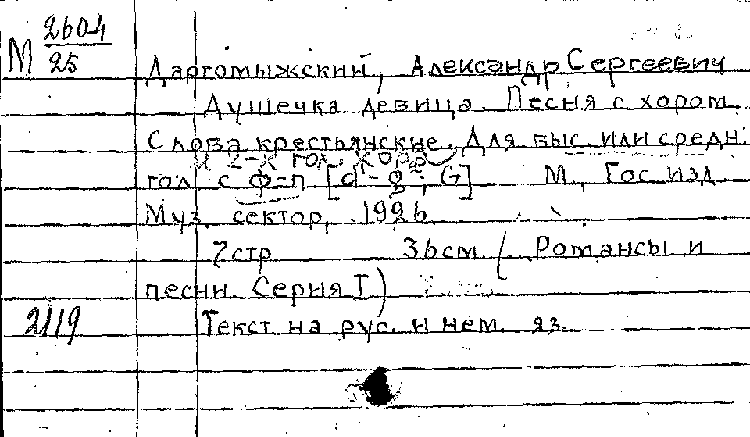 М 2604/25
Даргомыжский, Александр Сергеевич
Душечка девица. Песня с хором
Слова крестьянские. Для выс. или средн.
и 2-х гол. хора
гол. с ф-п [d¹-g²; G] М., Гос. изд.
Муз. сектор, 1926
7 стр. 36 см. (Романсы и
песни. Серия I)
2119 Текст на рус. и нем. яз.